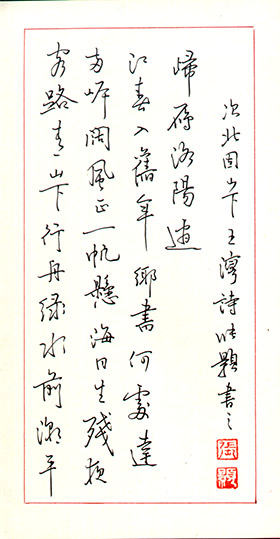 客路青山下行舟綠水前潮平
兩岸闊風正一帆懸海日生殘夜
江春入舊年鄉書何處達
歸雁洛陽邊
次北固山下王灣詩 書之